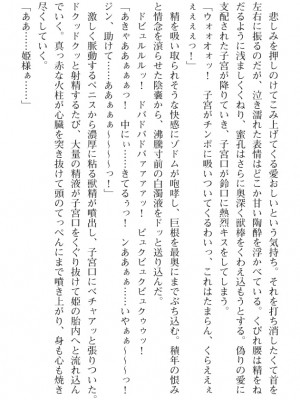 悲しみを押しのけてこみ上げてくる愛おしいという気持ち。それを打ち消したくて首を
左右に振るのだが、泣き濡れた表情はどこか甘い陶酔を浮かべている。くびれ腰は精をね
だるように浅ましくくねり、蜜孔はさらに奥へと獣根をくわえ込もうとする。偽りの愛に
支配された子宮が降りていき、子宮口が鈴口に熱烈キスをしてしまう。
「ウォオオッ！　子宮がチンポに吸いついてくるわい、これはたまらん、くらええぇ
ぇぇぇっ！」
精を吸い取られそうな快感にゾドムが咆哮し、巨根を最奥にまでぶち込む。積年の恨み
と情念を滾らせた陰嚢から、沸騰寸前の白濁液をドッと送り込んだ。
ドビュルルルッ！　ドバドバドバァァァッ！　ビュクビュクビュクゥゥッ！
「あきゃあぁぁぁっ！　中にぃ……きてるぅっ！　ンああぁぁ……いやぁぁ～～～っ！
ジン、助けて……ああぁぁぁ～～～～っ！」
激しく脈動するペニスから濃厚に粘る獣精が噴出し、子宮口にベチャアッと張りついた。
ドクッドクッと射精するたび、大量の精液が子宮口をくぐり抜けて姫の胎内へと流れ込ん
でいく。真っ赤な火柱が心臓を突き抜けて頭のてっぺんにまで噴き上がり、身も心も焼き
尽くしていく。
「ああ……姫様……」